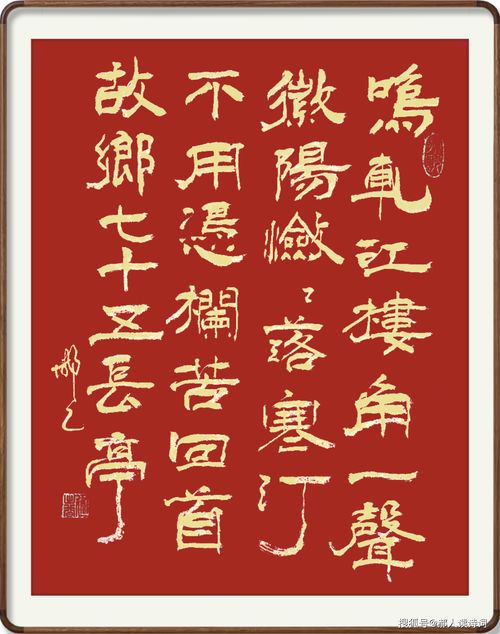 嗚軋江樓角一聲
微陽瀲〻落寒汀
不用憑欄苦回首
故鄉七十五長亭
搜狐号@